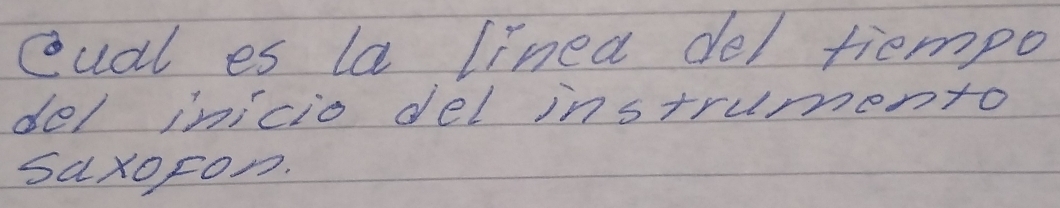 Cual es la linea del tiempo
del inicio del instrumento
saxofon.